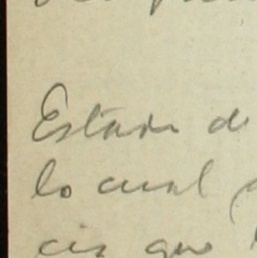 Estado de
lo cual
cia que